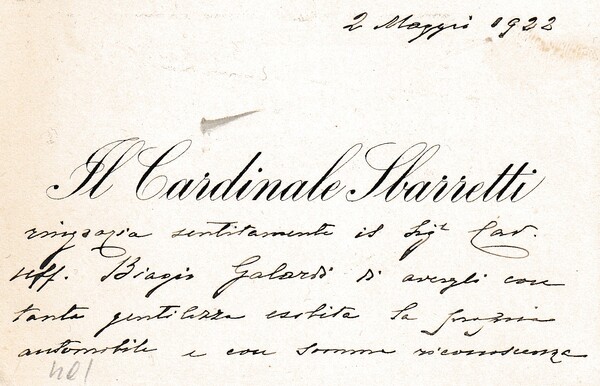 2 Maggio 1922
Il Cardinale Sbarretti
ringrazia sentitamente il Sigr Cav.
Uff. Biagio Galardi di avergli con
tanta gentilezza esibita la propria
automobile e con somma riconoscenza